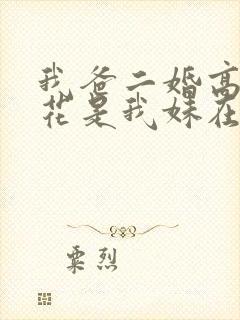 我爸二婚高
花是我妹在
粟烈